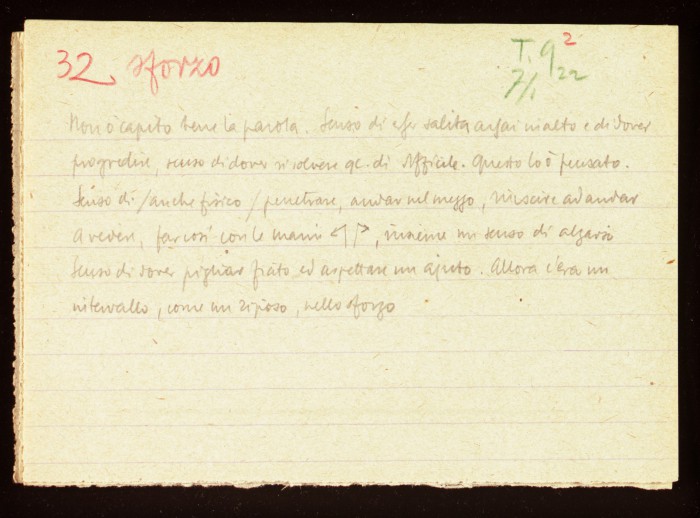 32 sforzo
T. 9 2
7/1 22
Non ò capito bene la parola. Senso di esser salita assai in alto e di dover
progredire, senso di dover risolvere qc. di difficile. Questo lo ò pensato.
Senso di /anche fisico/ penetrare, andar nel mezzo, riuscire ad andar
a vedere, far così con le mani, insieme un senso di alzarsi
Senso di dover pigliar fiato ed aspettare un ajuto. Allora c'era un
intervallo, come un riposo, nello sforzo